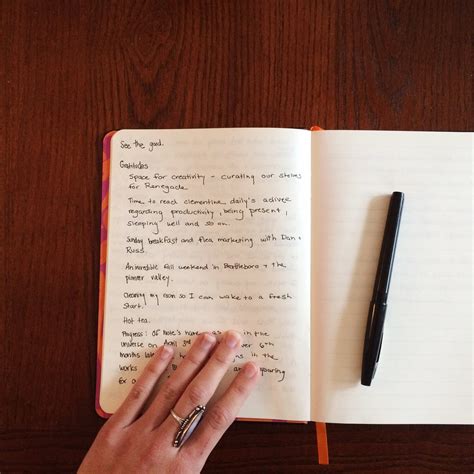 See the good.
Gratitudes
Space for creativity - curating our shelves
for Renegade
Time to read clementine daily's advice
regarding productivity, being present,
sleeping well and so on.
Sunday breakfast and flea marketing with Dan +
Russ.
An incredible fall weekend in Brattleboro + the
pioneer valley.
Cleaning my room so I can wake to a fresh
start.
Hot tea.
Progress: Of Note's name was in the
universe on April 3rd over 6th
months late in the
works
for a